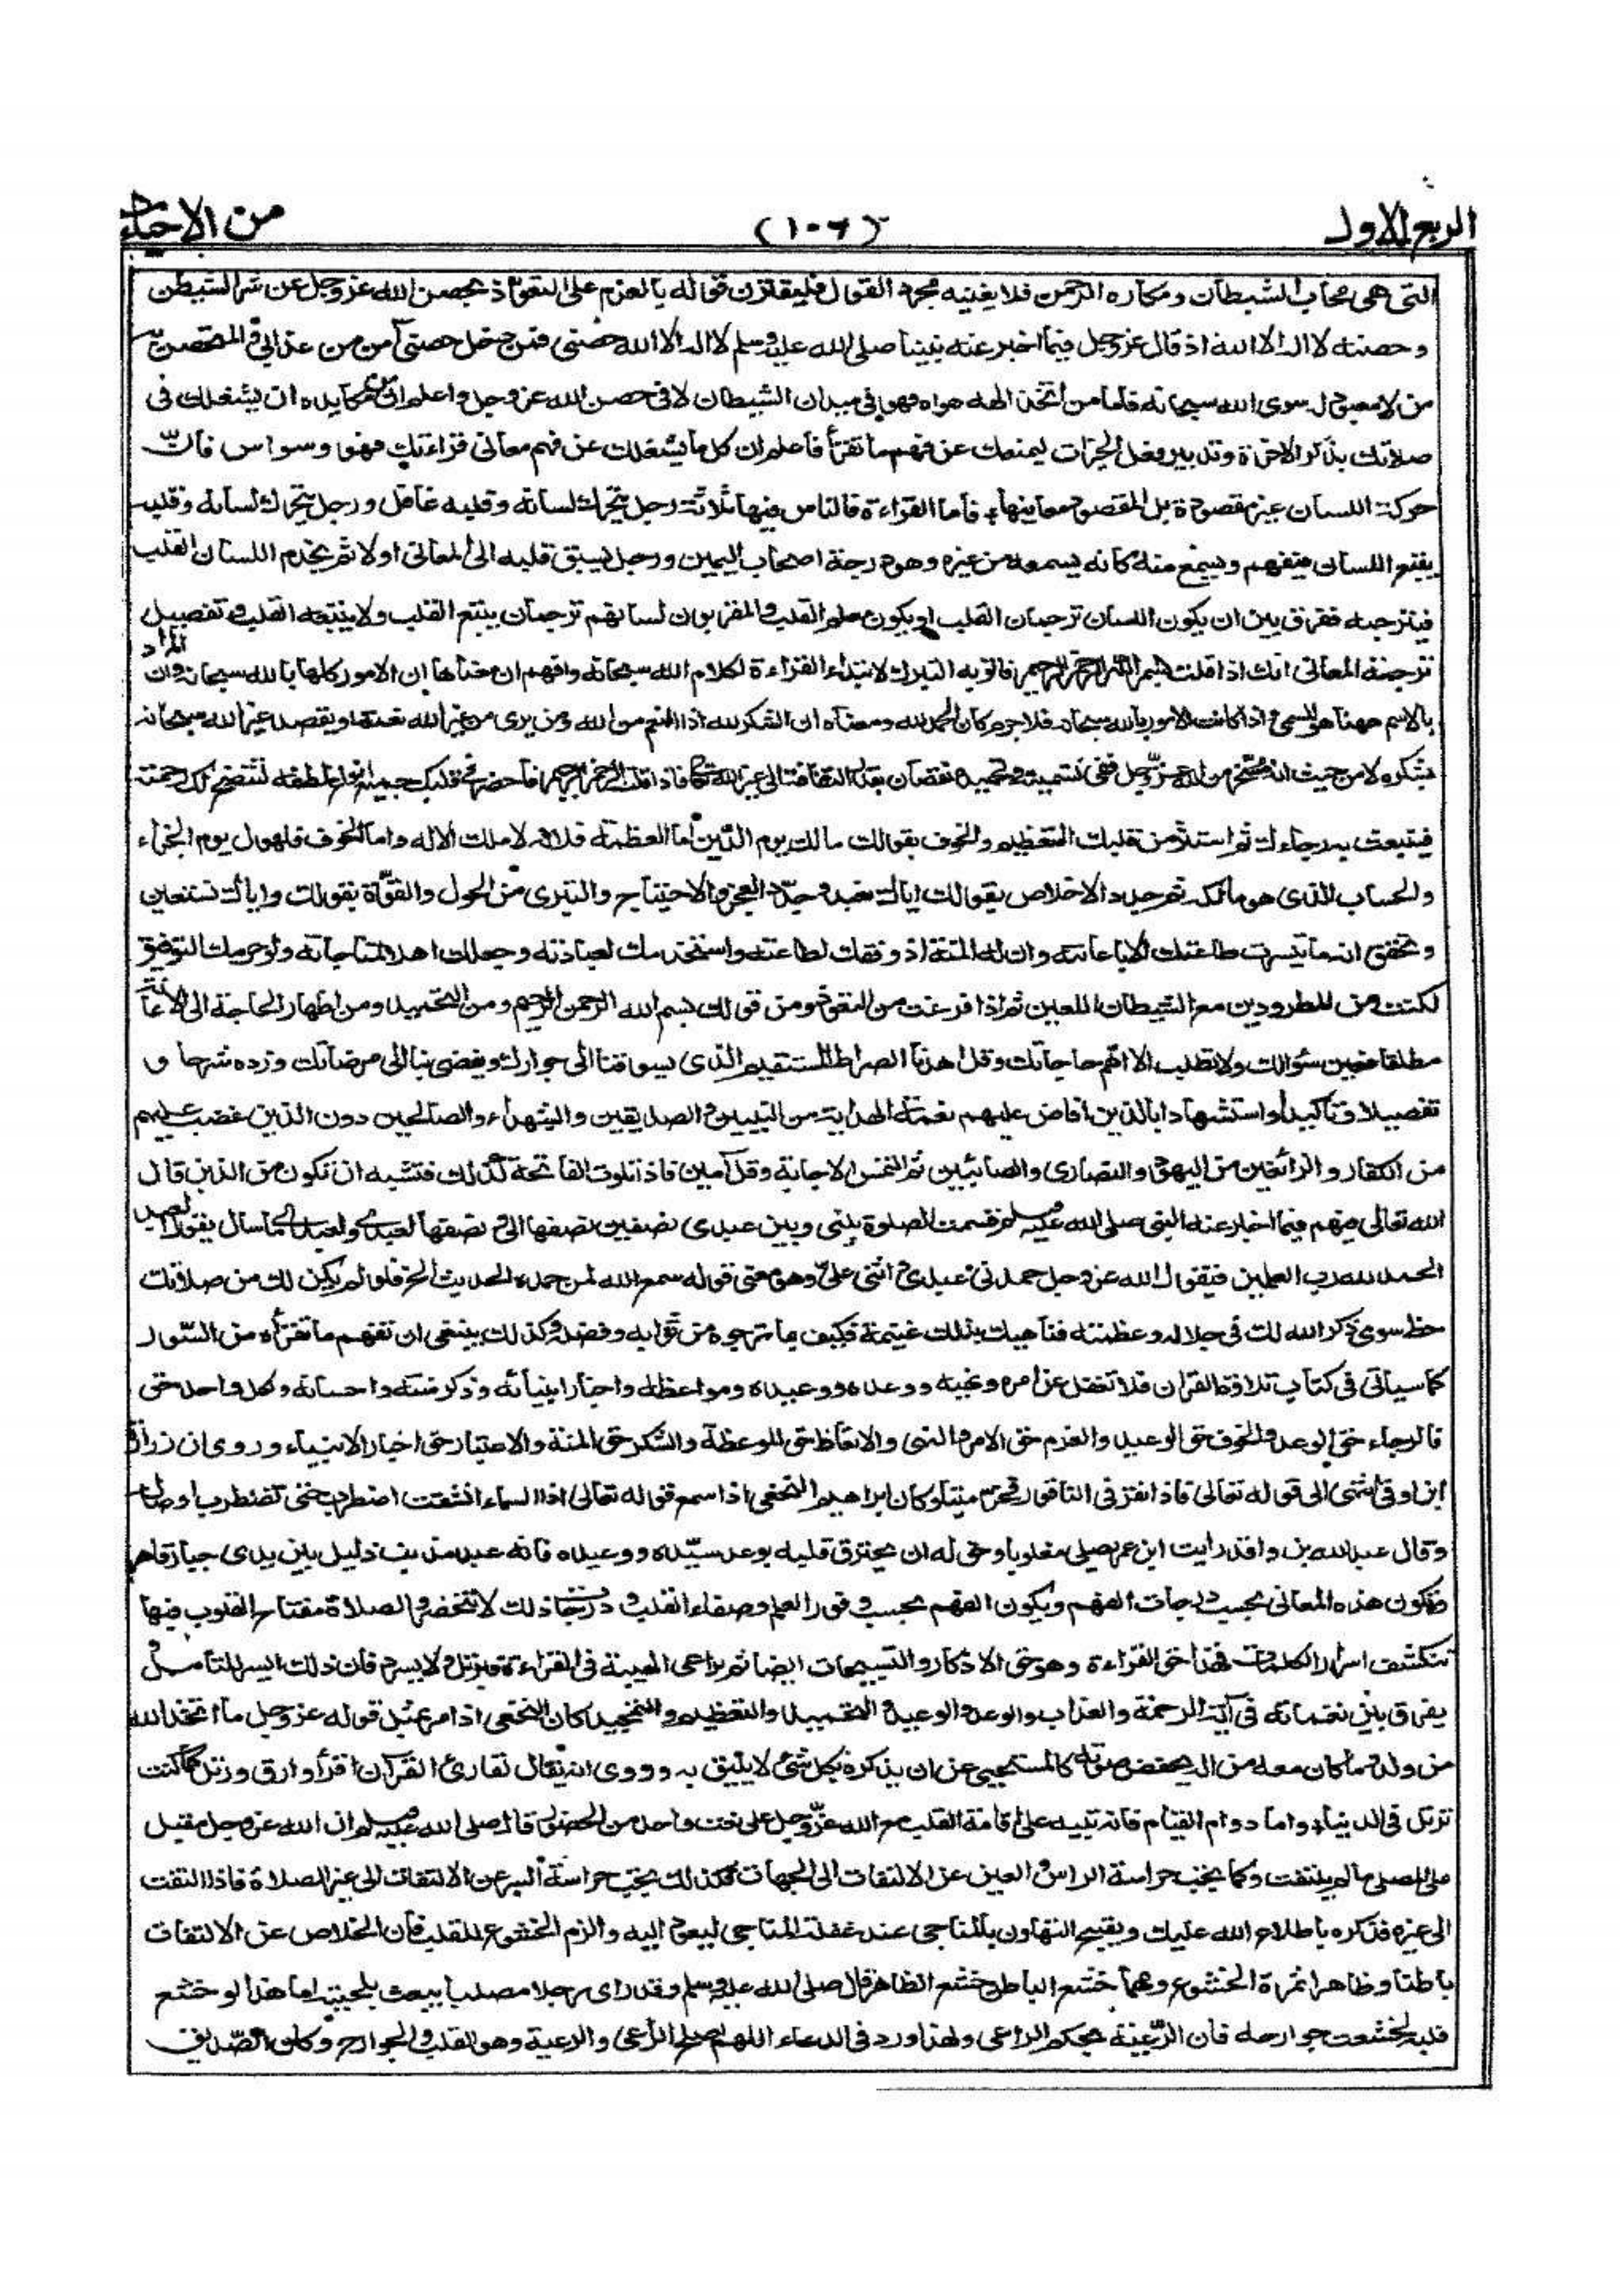 الربع الاول
(١٠٦)
من الاحياء
التى هى محاب الشيطان ومكاره الرحمن فلا يغنيه مجرد القول فليقترن قوله بالعزم على التعوذ بحصن الله عز وجل عن شر الشيطن
وحصنه لا اله الا الله اذ قال عز وجل فيما اخبر عنه نبينا صلى الله عليه وسلم لا اله الا الله حصنى فمن دخل حصنى آمن من عذابى والمتحصن به
من لا معبود له سوى الله سبحانه فاما من اتخذ الهه هواه فهو فى ميدان الشيطان لا فى حصن الله عز وجل واعلم ان من مكايده ان يشغلك فى
صلاتك بذكر الاخرة وتدبير فعل الخيرات ليمنعك عن فهم ما تقرأ فاعلم ان كل ما يشغلك عن فهم معانى قراءتك فهو وسواس فان
حركة اللسان غير مقصودة بل المقصود معانيها، فاما القراءة فالناس فيها ثلاثة رجل يتحرك لسانه وقلبه غافل ورجل يتحرك لسانه وقلبه
يتبع اللسان فيفهم ويسمع منه كانه يسمعه من غيره وهو درجة اصحاب اليمين ورجل يسبق قلبه الى المعانى اولا ثم يخدم اللسان القلب
فيترجمه ففرق بين ان يكون اللسان ترجمان القلب او يكون معلم القلب والمقربون لسانهم ترجمان يتبع القلب ولا يتبعه القلب وتفصيل
ترجمة المعانى انك اذا قلت بسم الله الرحمن الرحيم فانو به التبرك لابتداء القراءة لكلام الله سبحانه وافهم ان معناها ان الامور كلها بالله سبحانه وان المراد
بالاسم ههنا هو المسمى واذا كانت الامور بالله سبحانه فلا جرم كان الحمد لله ومعناه ان الشكر لله اذ النعم من الله ومن يرى من غير الله نعمة او يقصد غير الله سبحانه
بشكره لا من حيث انه مسخر من الله عز وجل ففى تسميته وتحميده نقصان بقدر التفاته الى غير الله تعالى فاذا قلت الرحمن الرحيم فاحضر فى قلبك جميع انواع لطفه لتتضح لك رحمته
فينبعث به رجاءك ثم استثر من قلبك التعظيم والخوف بقولك مالك يوم الدين اما العظمة فلانه لا ملك الا له واما الخوف فلهول يوم الجزاء
والحساب الذى هو مالكه ثم جدد الاخلاص بقولك اياك نعبد وجدد العجز والاحتياج والتبرى من الحول والقوة بقولك واياك نستعين
وتحقق انه ما تيسرت طاعتك الا باعانته وان له المنة اذ وفقك لطاعته واستخدمك لعبادته وجعلك اهلا لمناجاته ولو حرمك التوفيق
لكنت من المطرودين مع الشيطان اللعين ثم اذا فرغت من التعوذ ومن قولك بسم الله الرحمن الرحيم ومن التحميد ومن اظهار الحاجة الى الاعانة
مطلقا فعين سؤالك ولا تطلب الا اهم حاجاتك وقل اهدنا الصراط المستقيم الذى يسوقنا الى جوارك ويفضى بنا الى مرضاتك وزده شرحا و
تفصيلا وتأكيدا واستشهادا بالذين افاض عليهم نعمة الهداية من النبيين والصديقين والشهداء والصالحين دون الذين غضب عليهم
من الكفار والزائغين من اليهود والنصارى والصابئين ثم التمس الاجابة وقل آمين فاذا تلوت الفاتحة كذلك فتشبه ان تكون من الذين قال
الله تعالى فيهم فيما اخبار عنه النبى صلى الله عليه وسلم قسمت الصلوة بينى وبين عبدى نصفين نصفها لى ونصفها لعبدى ولعبدى ما سأل يقول العبد
الحمد لله رب العلمين فيقول الله عز وجل حمدنى عبدى واثنى على وهو معنى قوله سمع الله لمن حمده الحديث الخ فلو لم يكن لك من صلاتك
حظ سوى ذكر الله لك فى جلاله وعظمته فناهيك بذلك غنيمة فكيف ما ترجوه من ثوابه وفضله وكذلك ينبغى ان تفهم ما تقرأه من السور
كما سيأتى فى كتاب تلاوة القران فلا تغفل عن امره ونهيه ووعده ووعيده ومواعظه واخبار انبيائه وذكر مننه واحسانه ولكل واحد حق
فالرجاء حق الوعد والخوف حق الوعيد والعزم حق الامر والنهى والاتعاظ حق الموعظة والشكر حق المنة والاعتبار حق اخبار الانبياء وروى ان زرارة
ابن اوفى انتهى الى قوله تعالى فاذا نقر فى الناقور فخر ميتا وكان ابراهيم النخعى اذا سمع قوله تعالى اذا السماء انشقت اضطرب حتى تضطرب اوصاله
وقال عبد الله بن واقد رايت ابن عمر يصلى مغلوبا وحق له ان يحترق قلبه بوعد سيده ووعيده فانه عبد مذنب ذليل بين يدى جبار قاهر
وتكون هذه المعانى بحسب درجات الفهم ويكون الفهم بحسب وفور العلم وصفاء القلب ودرجات ذلك لا تنحصر والصلاة مفتاح القلوب فيها
تنكشف اسرار الكلمات فهذا حق القراءة وهو حق الاذكار والتسبيحات ايضا ثم يراعى الهيبة فى القراءة فيرتل ولا يسرد فان ذلك ايسر للتأمل و
يفرق بين نغماته فى آية الرحمة والعذاب والوعد والوعيد والتحميد والتعظيم والتمجيد كان النخعى اذا مر بمثل قوله عز وجل ما اتخذ الله
من ولد وما كان معه من اله يخفض صوته كالمستحيى عن ان يذكره بكل شئ لا يليق به وروى انه يقال لقارئ القرآن اقرأ وارق ورتل كما كنت
ترتل فى الدنيا، واما دوام القيام فانه تنبيه على اقامة القلب مع الله عز وجل على نعت واحد من الحضور قال صلى الله عليه وسلم ان الله عز وجل مقبل
على المصلى ما لم يلتفت وكما يجب حراسة الراس والعين عن الالتفات الى الجهات فكذلك يجب حراسة السر عن الالتفات الى غير الصلاة فاذا التفت
الى غيره فذكره باطلاع الله عليك وبقبح التهاون بالمناجى عند غفلة المناجى ليعود اليه والزم الخشوع للقلب فان الخلاص عن الالتفات
باطنا وظاهرا ثمرة الخشوع ومهما خشع الباطن خشع الظاهر قال صلى الله عليه وسلم وقد راى رجلا مصليا يعبث بلحيته اما هذا لو خشع
قلبه لخشعت جوارحه فان الرعية بحكم الراعى ولهذا ورد فى الدعاء اللهم اصلح الراعى والرعية وهو القلب والجوارح وكان الصديق